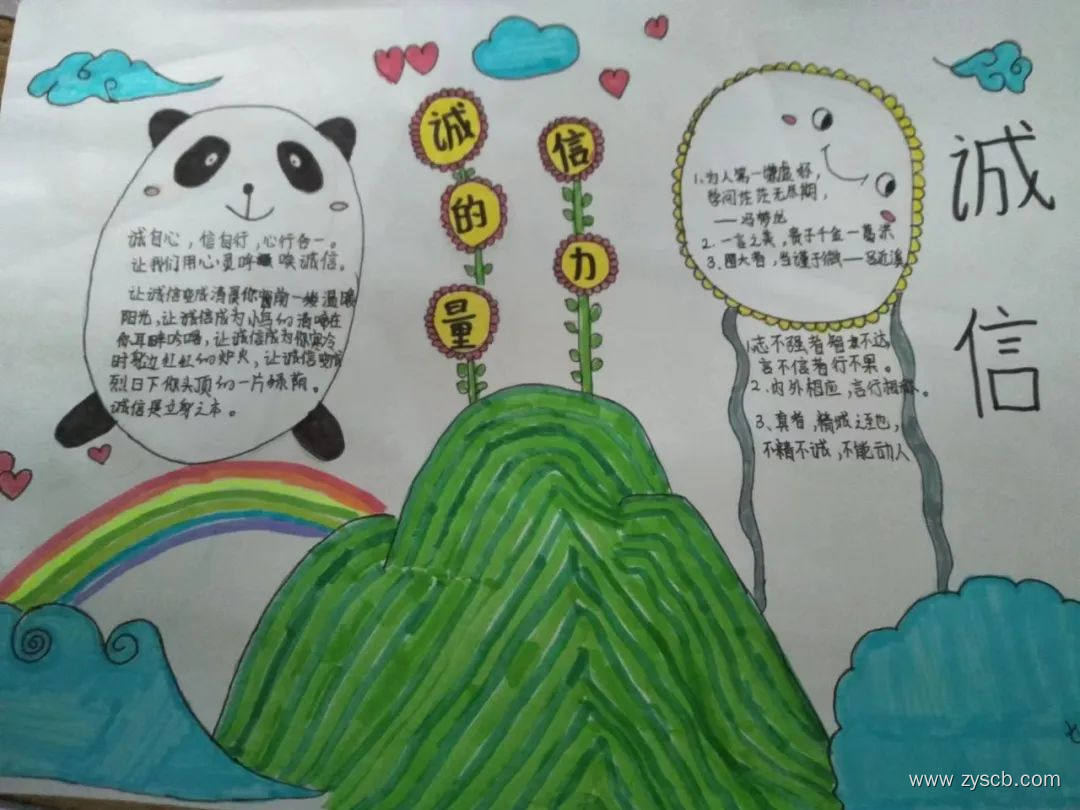 诚的量
信力
诚信
诚自心，信自行，心行合一。
让我们用心灵呼唤诚信。
让诚信变成清晨你窗前一缕温暖
阳光，让诚信成为小鸟的清啼在
你耳畔吟唱，让诚信成为你寒冷
时身边红红的炉火，让诚信变成
烈日下你头顶的一片绿荫。
诚信是立身之本。
1.为人第一谦虚好，
学问茫茫无尽期，
——冯梦龙
2.一言之美，贵于千金—葛洪
3.图大者，当谨于微——吕近溪
1.志不强者智不达，
言不信者行不果。
2、内外相应，言行相称。
3、真者，精诚之至也，
不精不诚，不能动人
www.zyscb.com